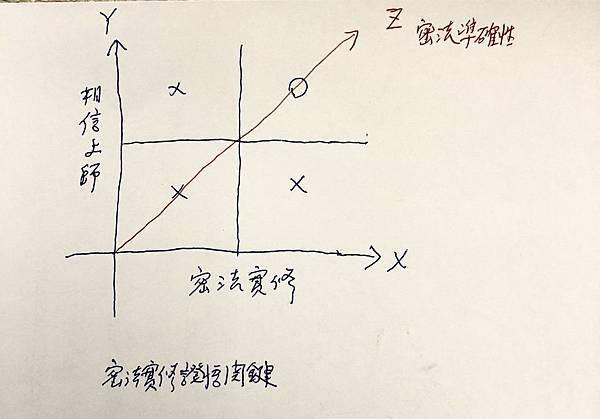 Y
Z 密法準確性
相信上師
X
密法實修
密法實修證悟関鍵